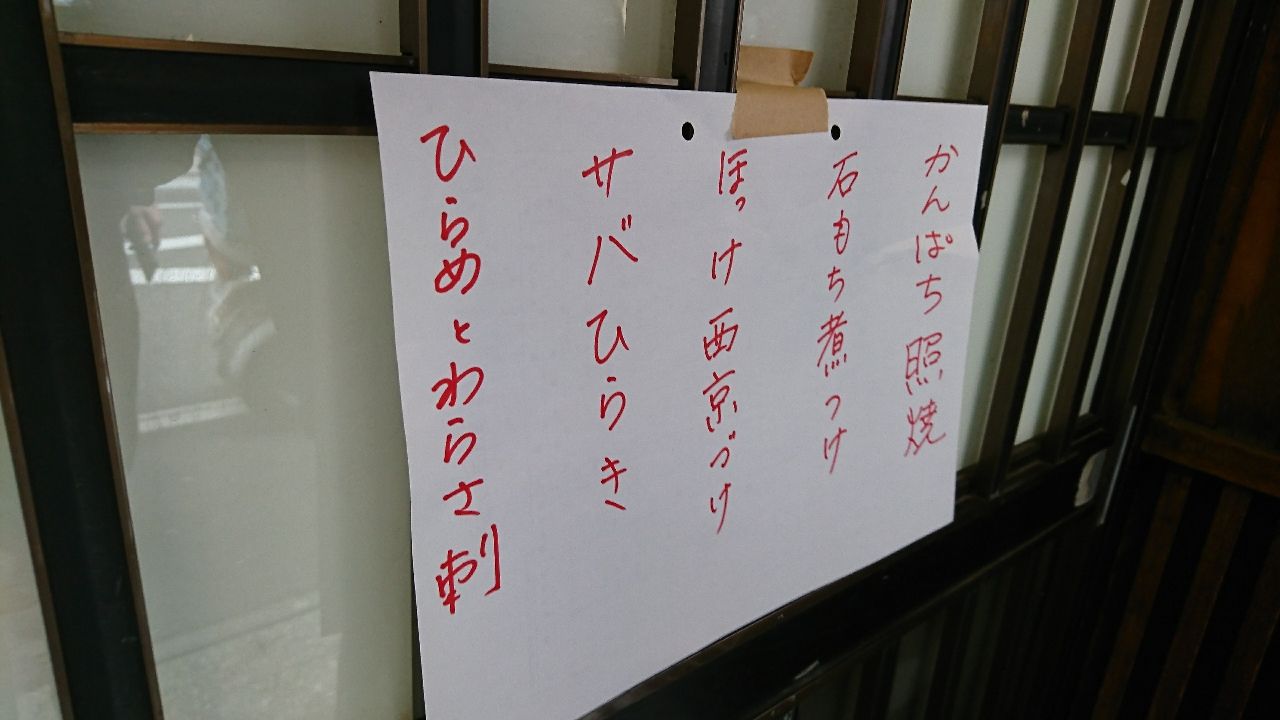 かんぱち照焼
石もち煮つけ
ほっけ西京づけ
サバひらき
ひらめとわらさ刺